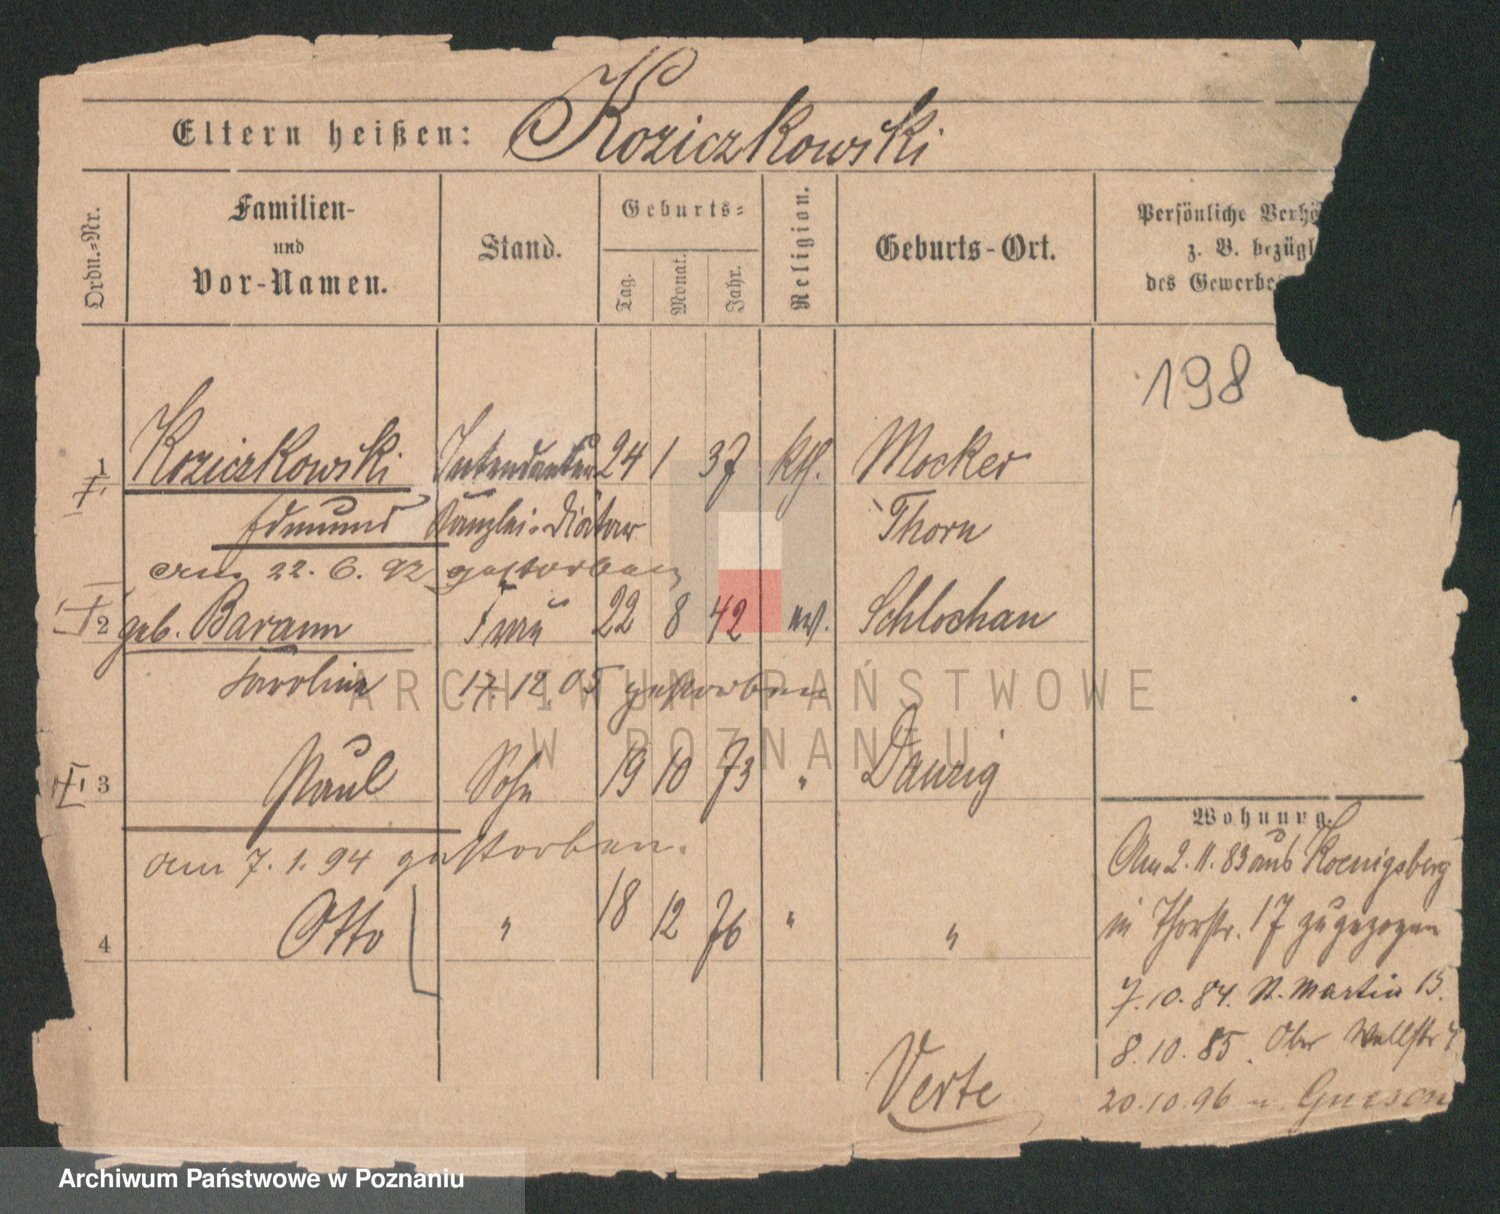 Eltern heißen: Koziczkowski
Ordn.-Nr.
Familien-
und
Vor-Namen.
Stand.
Geburts-
Tag.
Monat.
Jahr.
Religion.
Geburts-Ort.
Persönliche Verhö
z. B. bezügl
des Gewerbe
198
1 Koziczkowski Intendantur 24 1 37 kth. Mocker
I.
Edmund Kanzlei-Diätar Thorn
am 22. 6. 92 gestorben
2 geb. Barann Frau 22 8 42 ev. Schlochau
Karoline 17.12.05 gestorben
3 Paul Sohn 19 10 73 " Danzig
am 7. 1. 94 gestorben.
4 Otto " 18 12 76 " "
Wohnung.
Am 2. 11. 83 aus Koenigsberg
in Thorstr. 17 zugezogen
7. 10. 84. St. Martin 15.
8. 10. 85. Ober Wallstr 4
20.10.96 n. Gnesen
Verte
ARCHIWUM PAŃSTWOWE
W POZNANIU
Archiwum Państwowe w Poznaniu